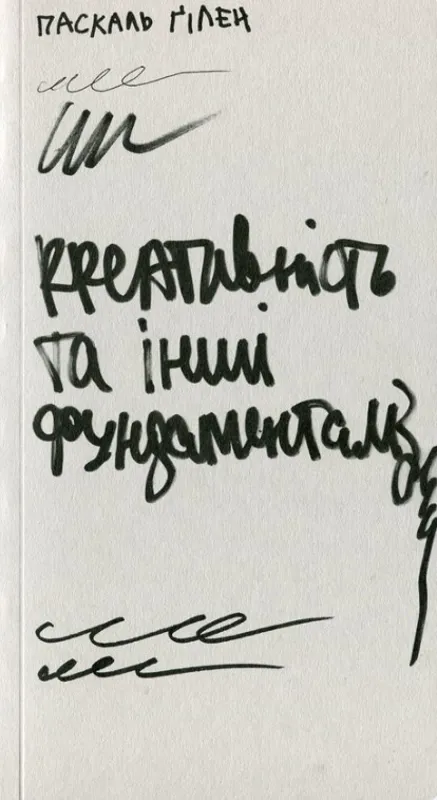 ПАСКАЛЬ ҐІЛЕН
креативність
та інши
фундаменталіз